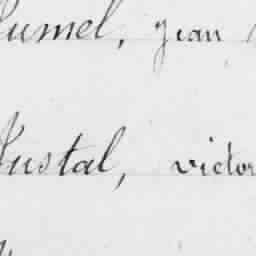 Jumel, Jean
Justal, victor